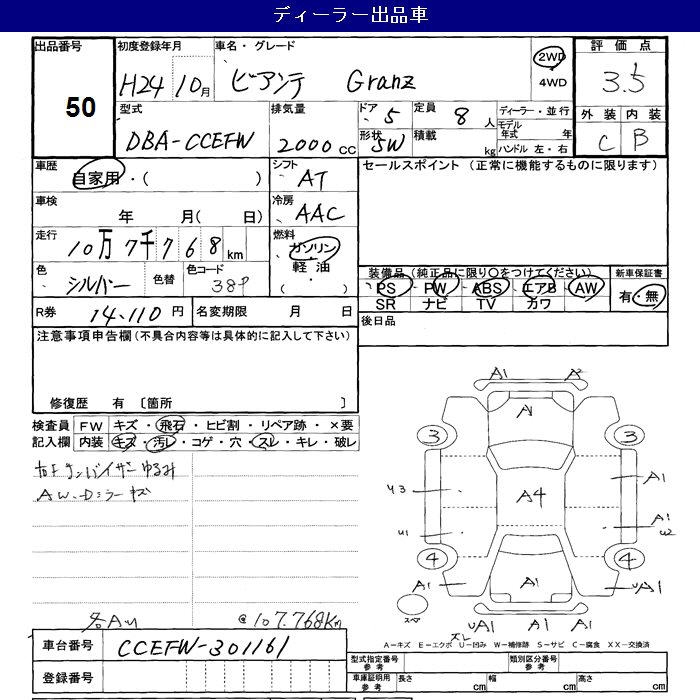 ディーラー出品車
出品番号 初度登録年月 車名・グレード 評価点
50 H24 10月 ビアンテ Granz 2WD 4WD 3.5
型式 排気量 ドア 5 定員 8人 ディーラー・並行 外装 内装
DBA-CCEFW 2000CC 形状 5W 積載 kg モデル年式 年 ハンドル 左・右 C B
車歴 自家用・( ) シフト AT セールスポイント (正常に機能するものに限ります)
車検 年 月( 日) 冷房 AAC
走行 10万7千768km 燃料 ガソリン・軽油・( )
色 シルバー 色替 色コード 38P 装備品(純正品に限り○をつけてください) 新車保証書
PS PW ABS エアB AW 有・無
SR ナビ TV カワ
R券 14,110円 名変期限 月 日 後日品
注意事項申告欄(不具合内容等は具体的に記入して下さい)
修復歴 有 〔箇所 〕
検査員 FW キズ・飛石・ヒビ割・リペア跡・×要
記入欄 内装 キズ・汚レ・コゲ・穴・スレ・キレ・破レ
右Fサンバイザーゆるみ
AW.Dミラーキズ
A1 A2
A1
3 3
A1
U3 A4
A1
U1 U2
4 4
A1 A1 UA1
スペア UA1 A1 A1
@107.768Km
スレ
A-キズ E-エクボ U-凹み W-補修跡 S-サビ C-腐食 XX-交換済
車台番号 CCEFW-301161
型式指定番号 参考 類別区分番号 参考
登録番号 車庫証明用 参考 長さ cm 幅 cm 高さ cm